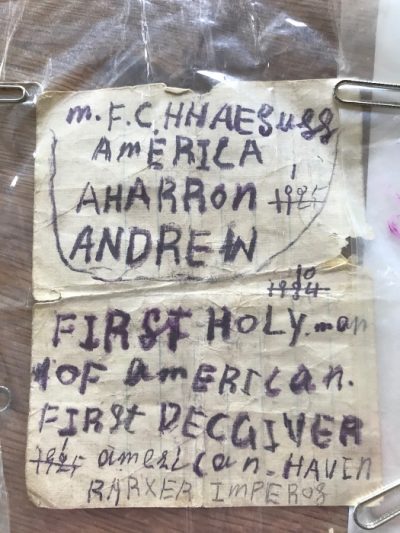 m. F. C. HHAESUSS
AMERICA
AHARRON 1 1925
ANDREW
10
1934
FIRST HOLY. man
OF AMERICAN.
FIRST DECGIVER
1 1925 AMERICAN. HAVEN
RARXER IMPEROS